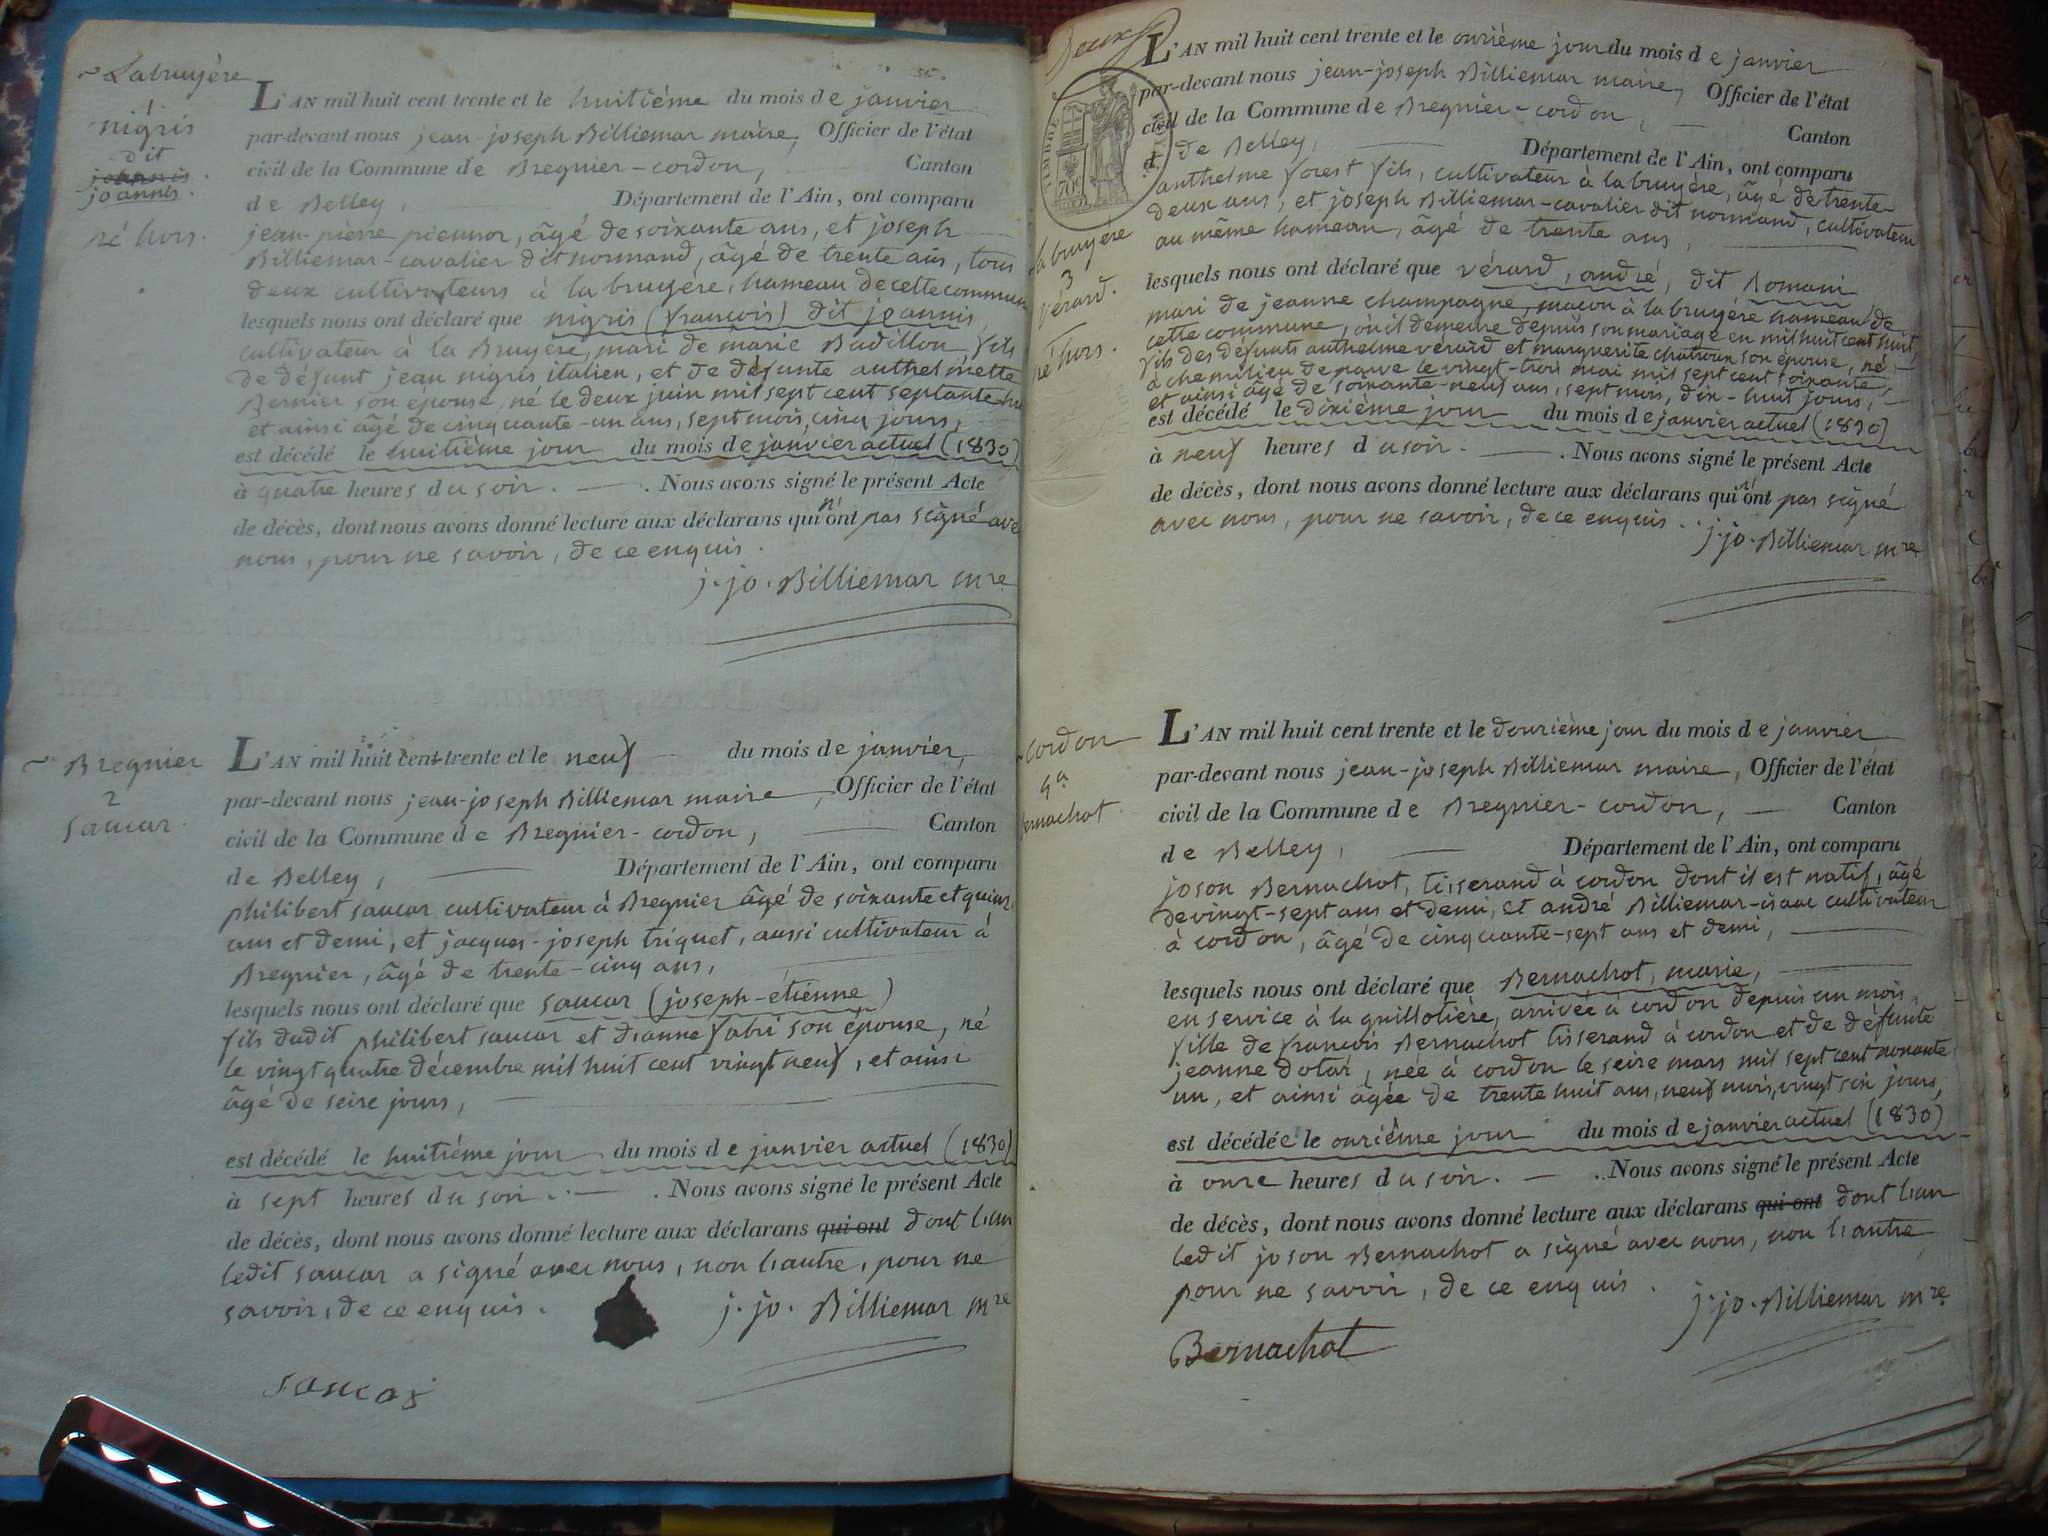 Labruyère
1
nigris
dit
joannis
joannis.
né hors.
L'AN mil huit cent trente et le huitième du mois de janvier
par-devant nous jean-joseph Billiemar maire, Officier de l'état
civil de la Commune de Bregnier-cordon, Canton
de Belley, Département de l'Ain, ont comparu
jean-pierre piennor, âgé de soixante ans, et joseph
Billiemar-cavalier dit normand, âgé de trente ans, tous
deux cultivateurs à la bruyère, hameau de cette commune
lesquels nous ont déclaré que nigris (françois) dit joannis,
cultivateur à la Bruyère, mari de marie Badillon, fils
de défunt jean nigris italien, et de défunte anthelmette
Bernier son épouse, né le deux juin mil sept cent septante-huit
et ainsi âgé de cinquante-un ans, sept mois, cinq jours,
est décédé le huitième jour du mois de janvier actuel (1830)
à quatre heures du soir. Nous avons signé le présent Acte
de décès, dont nous avons donné lecture aux déclarans qui n'ont pas signé avec
nous, pour ne savoir, de ce enquis.
j. jo. Billiemar mre
Bregnier
2
saucar.
L'AN mil huit cent trente et le neuf du mois de janvier,
par-devant nous jean-joseph Billiemar maire, Officier de l'état
civil de la Commune de Bregnier-cordon, Canton
de Belley, Département de l'Ain, ont comparu
philibert saucar cultivateur à Bregnier âgé de soixante et quinze
ans et demi, et jacques-joseph triquet, aussi cultivateur à
Bregnier, âgé de trente-cinq ans,
lesquels nous ont déclaré que saucar (joseph-étienne)
fils dudit philibert saucar et d'anne fabri son épouse, né
le vingt quatre décembre mil huit cent vingt neuf, et ainsi
âgé de seize jours,
est décédé le huitième jour du mois de janvier actuel (1830)
à sept heures du soir. Nous avons signé le présent Acte
de décès, dont nous avons donné lecture aux déclarans qui ont dont l'un
ledit saucar a signé avec nous, non l'autre, pour ne
savoir, de ce enquis.
j. jo. Billiemar mre
saucar
Deux
TIMBRE ROYAL
L'AN mil huit cent trente et le onzième jour du mois de janvier
par-devant nous jean-joseph Billiemar maire, Officier de l'état
civil de la Commune de Bregnier-cordon, Canton
d de Belley, Département de l'Ain, ont comparu
anthelme forest fils, cultivateur à labruyère, âgé de trente-
deux ans, et joseph Billiemar-cavalier dit normand, cultivateur
au même hameau, âgé de trente ans,
labruyère
3
vérard.
né hors.
lesquels nous ont déclaré que vérard, andré, dit Romani
mari de jeanne champagne, maçon à la bruyère hameau de
cette commune, où il demeure depuis son mariage en mil huit cent huit,
fils des défunts anthelme vérard et marguerite chatroux son épouse, né
à chemilieu de parve le vingt-trois mai mil sept cent soixante,
et ainsi âgé de soixante-neuf ans, sept mois, dix-huit jours,
est décédé le dixième jour du mois de janvier actuel (1830)
à neuf heures du soir. Nous avons signé le présent Acte
de décès, dont nous avons donné lecture aux déclarans qui n'ont pas signé
avec nous, pour ne savoir, de ce enquis.
j. jo. Billiemar mre
cordon
4a
Bernachot.
L'AN mil huit cent trente et le douzième jour du mois de janvier
par-devant nous jean-joseph Billiemar maire, Officier de l'état
civil de la Commune de Bregnier-cordon, Canton
de Belley, Département de l'Ain, ont comparu
joson Bernachot, tisserand à cordon dont il est natif, âgé
de vingt-sept ans et demi, et andré Billiemar-isaac cultivateur
à cordon, âgé de cinquante-sept ans et demi,
lesquels nous ont déclaré que Bernachot, marie,
en service à la guillotière, arrivée à cordon depuis un mois,
fille de françois Bernachot tisserand à cordon et de défunte
jeanne dotar, née à cordon le seize mars mil sept cent nonante
un, et ainsi âgée de trente huit ans, neuf mois, vingt six jours,
est décédée le onzième jour du mois de janvier actuel (1830)
à onze heures du soir. Nous avons signé le présent Acte
de décès, dont nous avons donné lecture aux déclarans qui ont dont l'un
ledit joson Bernachot a signé avec nous, non l'autre,
pour ne savoir, de ce enquis.
j. jo. Billiemar mre
Bernachot